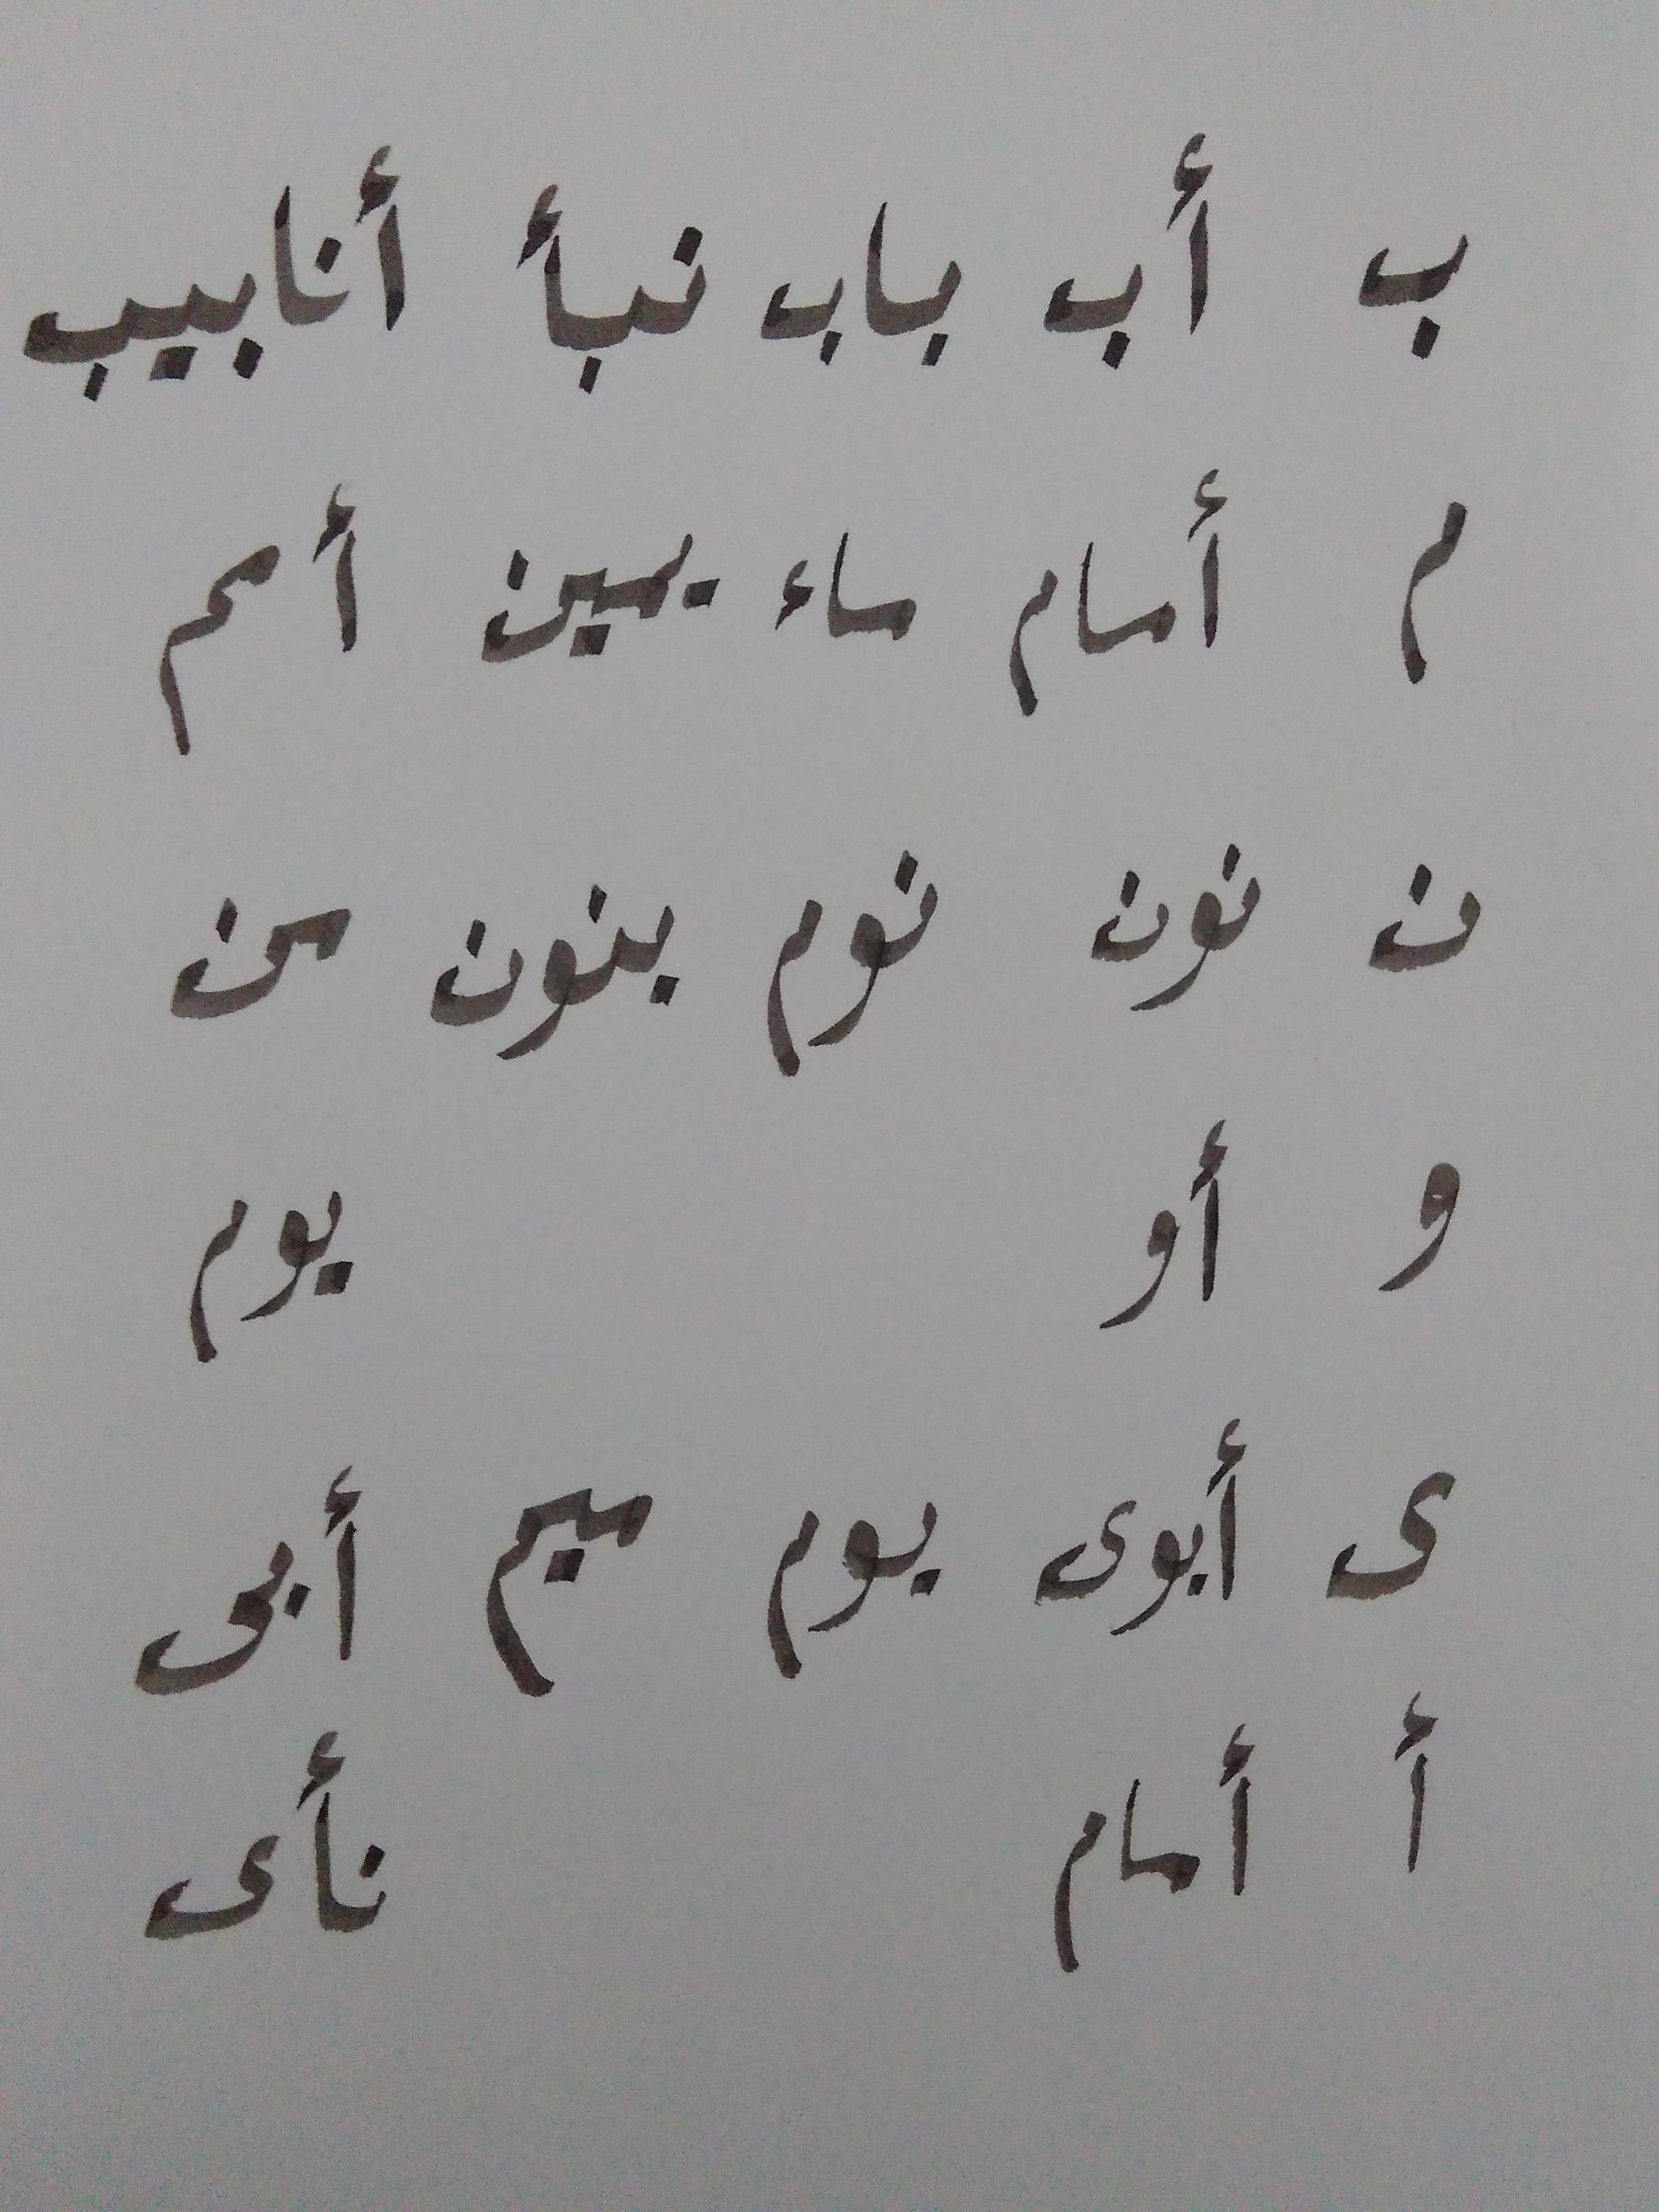 ب أب باب نبأ أنابيب
م أمام ماء يمين أمم
ن نون نوم بنون من
و أو يوم
ى أبوى يوم ميم أبى
أ أمام نأى